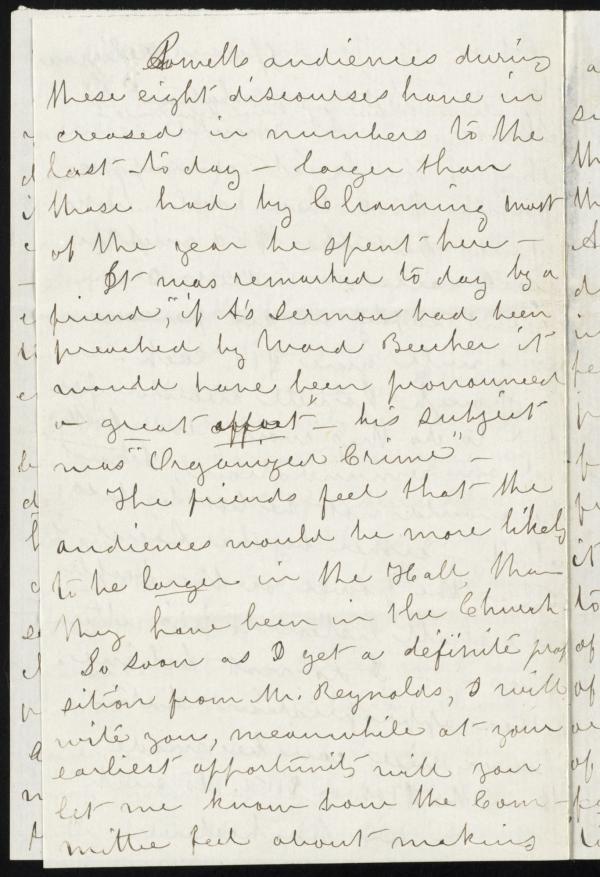 Powells audiences during
these eight discourses have in
creased in numbers to the
last to day — larger than
those had by Channing most
of the year he spent here —
It was remarked to day by a
friend, "if A's sermon had been
preached by Ward Beecher it
would have been pronounced
a great effort" — his subject
was "Organized Crime" —
The friends feel that the
audiences would be more likely
to be larger in the Hall, than
they have been in the Church.
So soon as I get a definite prop
sition from Mr. Reynolds, I will
write you, meanwhile at your
earliest opportunity will you
let me know how the Com-
mittee feel about making